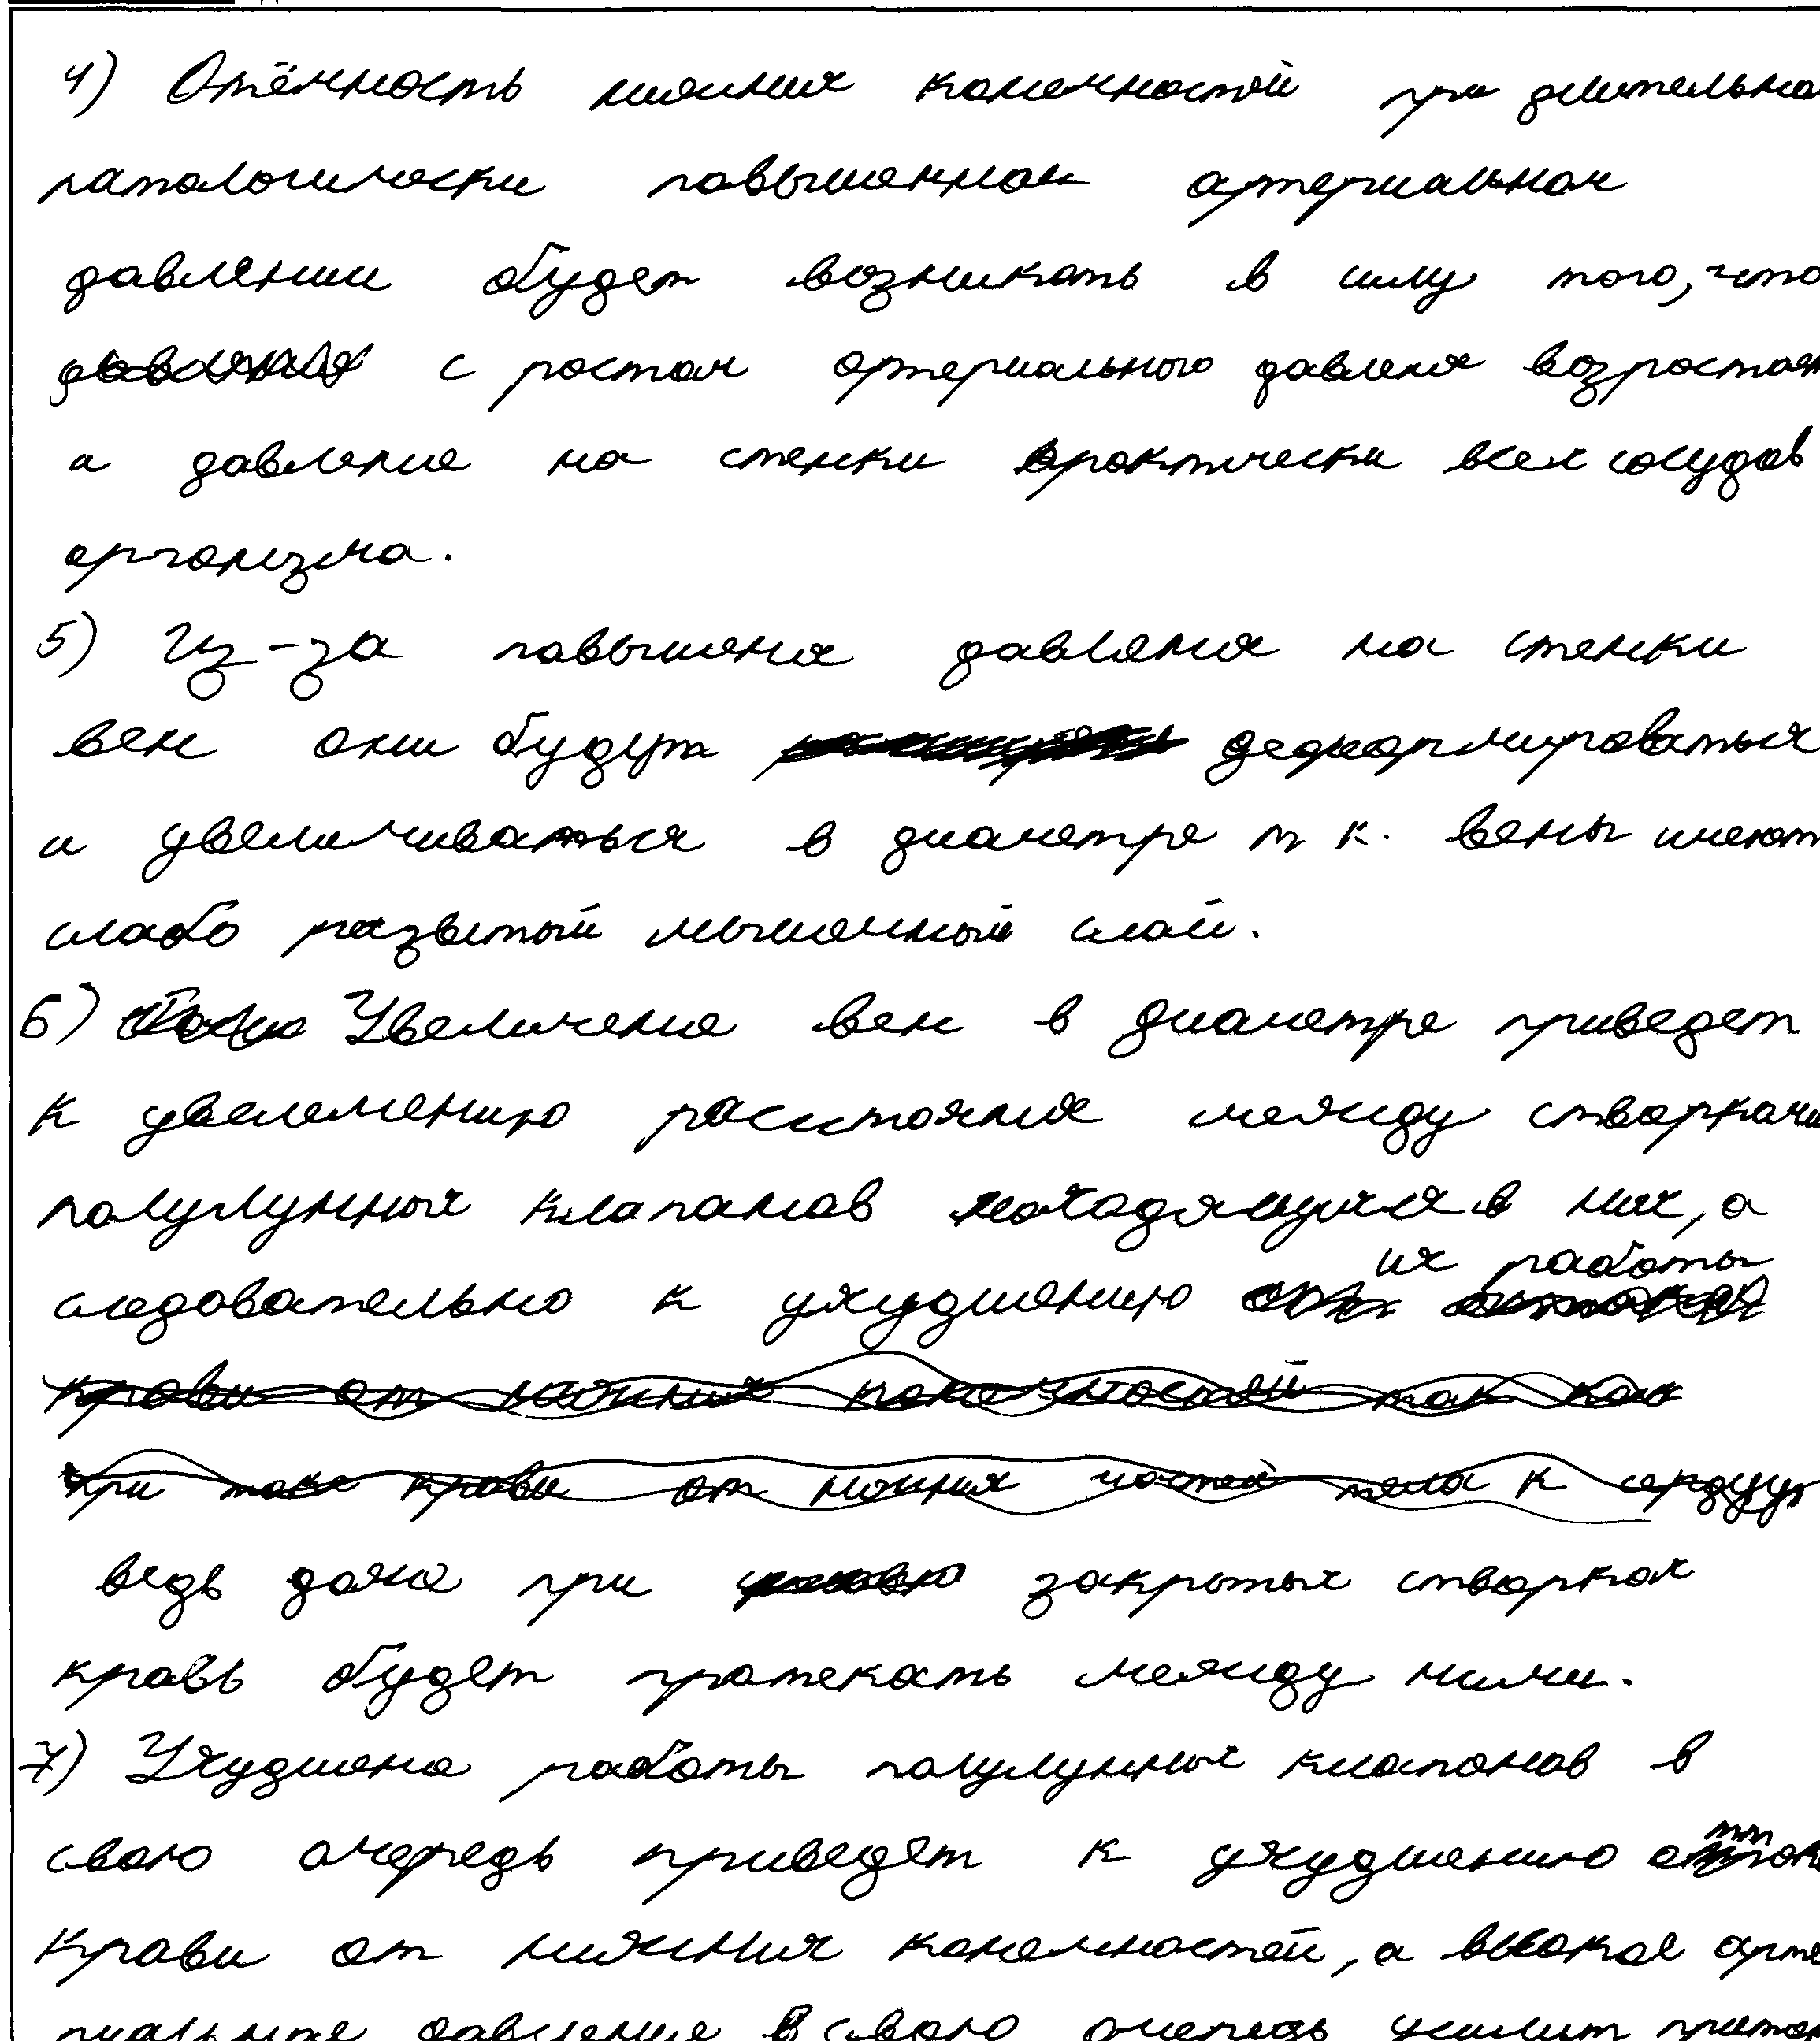 4) Отёчность нижних конечностей при длительно
патологически повышенном артериальном
давлении будет возникать в силу того, что
с ростом артериального давления возрастает
и давление на стенки практически всех сосудов
организма.
5) Из-за повышения давления на стенки
вен они будут деформироваться
и увеличиваться в диаметре т к. вены имеют
слабо развитый мышечный слой.
6) Увеличение вен в диаметре приведет
к увеличению расстояния между створками
полулунных клапанов находящихся в них, а
следовательно к ухудшению их работы
крови от нижних конечностей так как
при токе крови от нижних частей тела к сердцу,
ведь даже при закрытых створках
кровь будет протекать между ними.
7) Ухудшение работы полулунных клапанов в
свою очередь приведет к ухудшению отток
крови от нижних конечностей, а высокое арте
риальное давление в свою очередь усилит приток